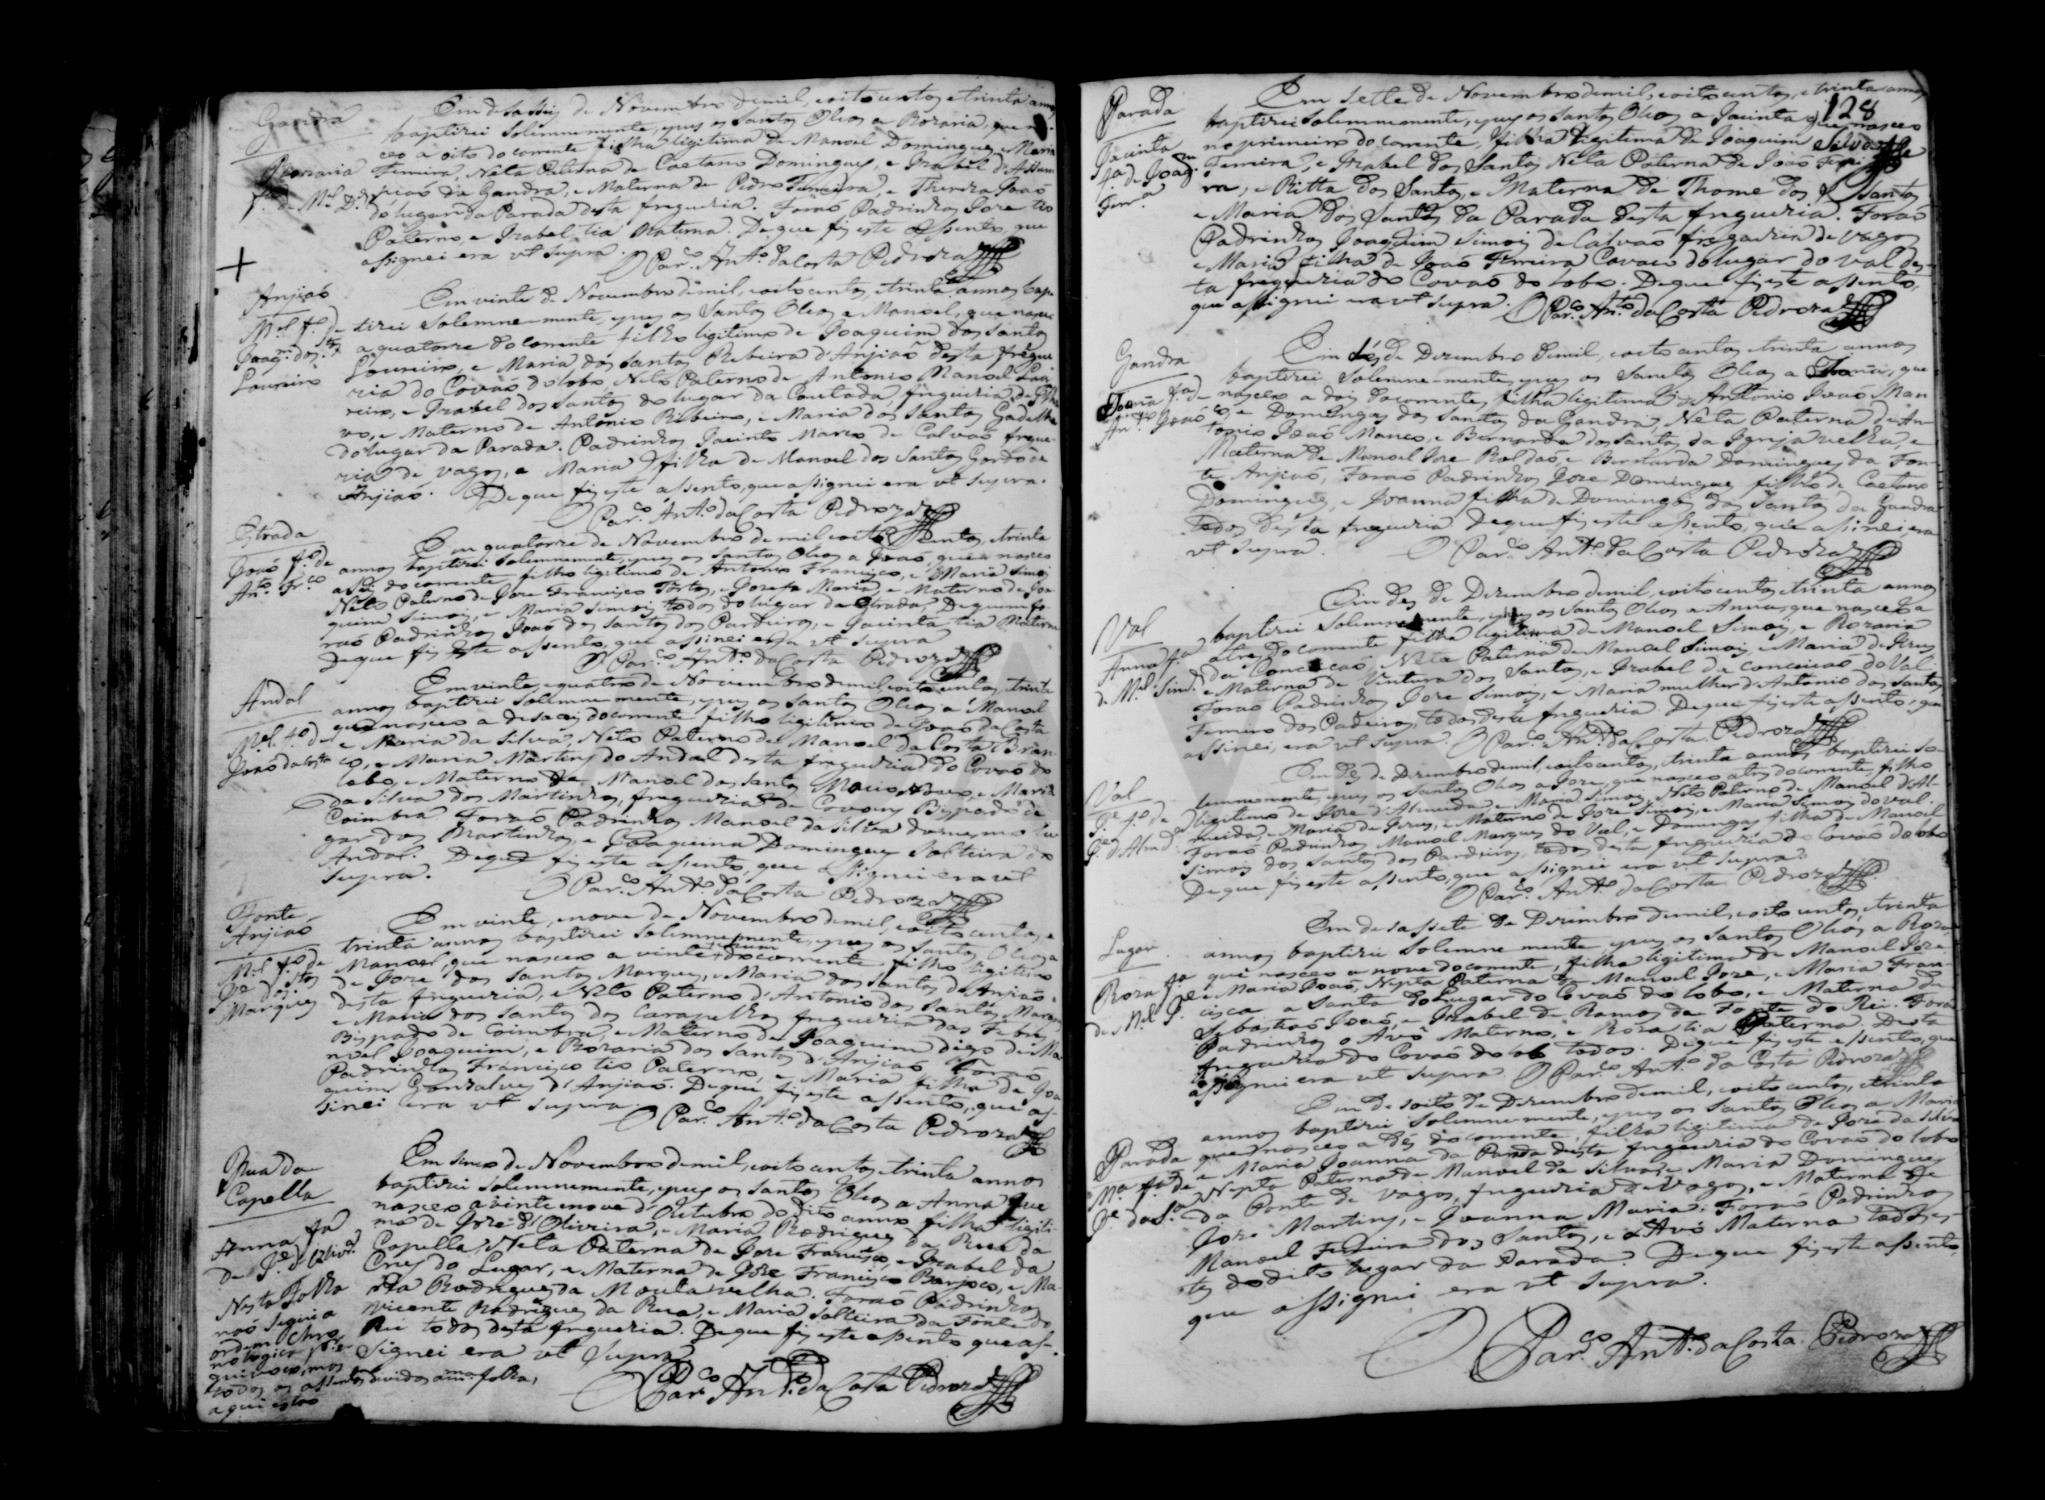 Gandra
Rozaria
fa. de Mel. Dos.
Em desasseis de Novembro de mil, oito centos, e trinta annos
baptizei solemnemente, e pus os Santos Oleos a Rozaria, que nas-
ceo a oito do corrente filha legitima de Manoel Domingues, e Maria
Ferreira, Neta Paterna de Caetano Domingues, e Izabel d'Assum-
pçaõ da Gandra, e Materna de Pedro Ferreira, e Thereza Joaõ
do lugar da Parada desta freguezia. Foraõ Padrinhos Joze tio
Paterno, e Izabel tia Materna. De que fiz este assento, que
assignei era ut supra. O Par.co Ant.o da Costa Pedroza
Anjiaõ
Mel. fo. de
Joaq.m dos S.tos
Loureiro
Em vinte de Novembro de mil, oito centos, e trinta annos bap-
tizei solemne-mente, e pus os Santos Oleos a Manoel, que nasceo
a quatorze do corrente filho legitimo de Joaquim dos Santos
Loureiro, e Maria dos Santos Ribeira d'Anjiaõ desta fregue-
zia do Covaõ do Lobo, Neto Paterno de Antonio Manoel Lou-
reiro, e Izabel dos Santos do lugar da Coutada, freguezia de Ilha-
vo, e Materno de Antonio Ribeiro, e Maria dos Santos Gadelha
do lugar da Parada. Padrinhos Jacinto Marco de Calvaõ fregue-
zia de Vagos, e Maria filha de Manoel dos Santos Gordo de
Anjiaõ. De que fiz este assento, que assignei era ut supra.
O Par.co Ant.o da Costa Pedroza
Estrada
Joaõ fo. de
An.to Fr.co
Em quatorze de Novembro de mil oito centos, e trinta
annos baptizei solemnemente, e pus os Santos Oleos a Joaõ, que nasceo
a seis do corrente filho legitimo de Antonio Francisco, e Maria Simois
Neto Paterno de Joze Francisco Torto, e Jozefa Maria, e Materno de Joa-
quim Simois, e Maria Simois todos do lugar da Estrada. De quem fo-
raõ Padrinhos Joaõ dos Santos dos Pardeiros, e Jacinta tia Materna
De que fiz este assento, que assinei era ut supra
O Par.co Ant.o da Costa Pedroza
Andal
Mel. fo. de
Joaõ da Costa
Em vinte, e quatro de Novembro de mil, oito centos, e trinta
annos baptizei solemnemente, e pus os Santos Oleos a Manoel
que nasceo a desaseis do corrente filho legitimo de Joaõ da Costa
e Maria da Silva, Neto Paterno de Manoel da Costa Bran-
co, e Maria Martins do Andal desta freguezia do Covaõ do
Lobo, e Materno de Manoel dos Santos e Maria
da Silva dos Martinhos, freguezia de Covoens Bispado de
Coimbra Foraõ Padrinhos Manoel da Silva do mesmo lu-
gar dos Martinhos, e Joaquina Domingues solteira do
Andal. De que fiz este assento, que assignei era ut
supra.
O Par.co Ant.o da Costa Pedroza
Fonte
Anjiaõ
Mel. fo. de
Je. dos S.tos
Marques
Em vinte, e nove de Novembro de mil, oito centos, e
trinta annos baptizei solemnemente, e pus os Santos Oleos a
Manoel que nasceo a vinte e hum do corrente, filho legitimo
de Joze dos Santos Marques, e Maria dos Santos de Anjiaõ
desta freguezia, e Neto Paterno d'Antonio dos Santos Marques
e Maria dos Santos do Carapelhos freguezia das Febres
Bispado de Coimbra, e Materno de Joaquim digo de Ma-
noel Joaquim, e Rozaria dos Santos d'Anjiaõ. Foraõ
Padrinhos Francisco tio Paterno, e Maria filha de Joa-
quim Gonsalves d'Anjiaõ. De que fiz este assento, que as-
sinei era ut supra.
O Par.co Ant.o da Costa Pedroza
Rua da
Capella
Anna fa.
de Je. d'Oliv.a
Nesta Folha
naõ seguia
ordem Chro-
nologica p.r e-
quivoco, mas
todos os assentos devidos a esta folha,
aqui estaõ
Em sinco de Novembro de mil, oito centos, e trinta annos
baptizei solemnemente, e pus os Santos Oleos a Anna que
nasceo a vinte e nove d'Outubro do dito anno filha legiti-
ma de Joze d'Oliveira, e Maria Rodrigues da Rua da
Capella, Neta Paterna de Joze Francisco, e Izabel da
Crus do Lugar, e Materna de Joze Francisco Barjoco, e Ma-
ria Rodrigues da Moutavelha. Foraõ Padrinhos
Vicente Rodrigues da Rua, e Maria solteira da Fonte do
Rei todos desta freguezia. De que fiz este assento que as-
signei era ut supra
O Par.co Ant.o da Costa Pedroza
128
Parada
Jacinta
fa. de Joaq.m
Ferr.a
Em sette de Novembro de mil, oito centos, e trinta annos
baptizei solemnemente, e pus os Santos Oleos a Jacinta que nasceo
no primeiro do corrente, filha legitima de Joaquim Silvestre
Ferreira, e Izabel dos Santos, Neta Paterna de Joaõ Ferrei-
ra, e Ritta dos Santos, e Materna de Thome dos Santos
e Maria dos Santos da Parada desta freguezia. Foraõ
Padrinhos Joaquim Simois de Calvaõ freguezia de Vagos
e Maria filha de Joaõ Ferreira Covaco do lugar do Val des-
ta freguezia do Covaõ do Lobo. De que fiz este assento,
que assignei era ut supra. O Par.co An.to da Costa Pedroza
Gandra
Joana fa. de
An.to Joaõ
Em dés de Dezembro de mil, oito centos, e trinta annos
baptizei solemne-mente, e pus os Santos Oleos a Joana, que
nasceo a dois do corrente, filha legitima de Antonio Joaõ Man-
co, e Domingas dos Santos da Gandra, Neta Paterna de An-
tonio Joaõ Manco, e Bernarda dos Santos da Igreja velha, e
Materna de Manoel Joze Roldaõ e Bernarda Domingues da Fon-
te Anjiaõ, Foraõ Padrinhos Joze Domingues filho de Caetano
Domingues, e Joanna filha de Domingos dos Santos da Gandra
todos desta freguezia De que fiz este assento, que assinei, era
ut supra. O Par.co Ant.o da Costa Pedroza
Val
Anna fa.
de Mel. Sim.s
Em des de Dezembro de mil, oito centos, e trinta annos
baptizei solemnemente, e pus os Santos Oleos a Anna, que nasceo a
tres do corrente filha legitima de Manoel Simois, e Rozaria
da Conceicaõ, Neta Paterna de Manoel Simois, e Maria de Jezus
e Materna de Ventura dos Santos, e Izabel da Conceicaõ do Val
Foraõ Padrinhos Joze Simois, e Maria mulher d'Antonio dos Santos
Ferreiro dos Pardeiros, todos desta freguezia De que fiz este assento, que
assinei, era ut supra. O Par.co Ant.o da Costa Pedroza
Val
Je. fo. de
Je. d'Almd.a
Em des de Dezembro de mil, oito centos, e trinta annos, baptizei so-
lemnemente, e pus os Santos Oleos a Joze, que nasceo a tres do corrente, filho
legitimo de Joze d'Almeida, e Maria Simois, Neto Paterno de Manoel d'Al-
meida, e Maria de Jezus, e Materno de Joze Simois, e Maria Simois do Val.
Foraõ Padrinhos Manoel Marques do Val, e Domingas filha de Manoel
Simois dos Santos dos Pardeiros, todos desta freguezia do Covaõ do Lobo
De que fiz este assento, que assignei era ut supra.
O Par.co Ant.o da Costa Pedroza
Lugar
Roza fa.
de Mel. Je.
Em desassete de Dezembro de mil, oito centos, e trinta
annos baptizei solemne mente, e pus os Santos Oleos, a Roza
que nasceo a nove do corrente, filha legitima de Manoel Joze
e Maria Joaõ, Nepta Paterna de Manoel Joze, e Maria Fran-
cisca a Santa do Lugar do Covaõ do Lobo, e Materna de
Sebastiaõ Joaõ, e Izabel de Ramos da Fonte do Rei. Foraõ
Padrinhos o Avô Materno, e Roza tia Paterna. Desta
freguezia do Covaõ do Lobo todos. De que fiz este assento, que
assignei era ut supra. O Par.co Ant.o da Costa Pedroza
Parada
Ma. fa. de
Je. da S.a
Em desoito de Dezembro de mil, oito centos, e trinta
annos baptizei solemnemente, e pus os Santos Oleos a Maria
que nasceo a dés do corrente, filha legitima de Joze da Silva
e Maria Joanna da Parada desta freguezia do Covaõ do Lobo
Nepta Paterna de Manoel da Silva, e Maria Domingues
da Ponte de Vagos, freguezia de Vagos, e Materna de
Joze Martins, e Joanna Maria. Foraõ Padrinhos
Manoel Ferreira dos Santos, e a Avó Materna todos es-
tes do dito lugar da Parada. De que fiz este assento
que assignei era ut supra.
O Par.co Ant.o da Costa Pedroza